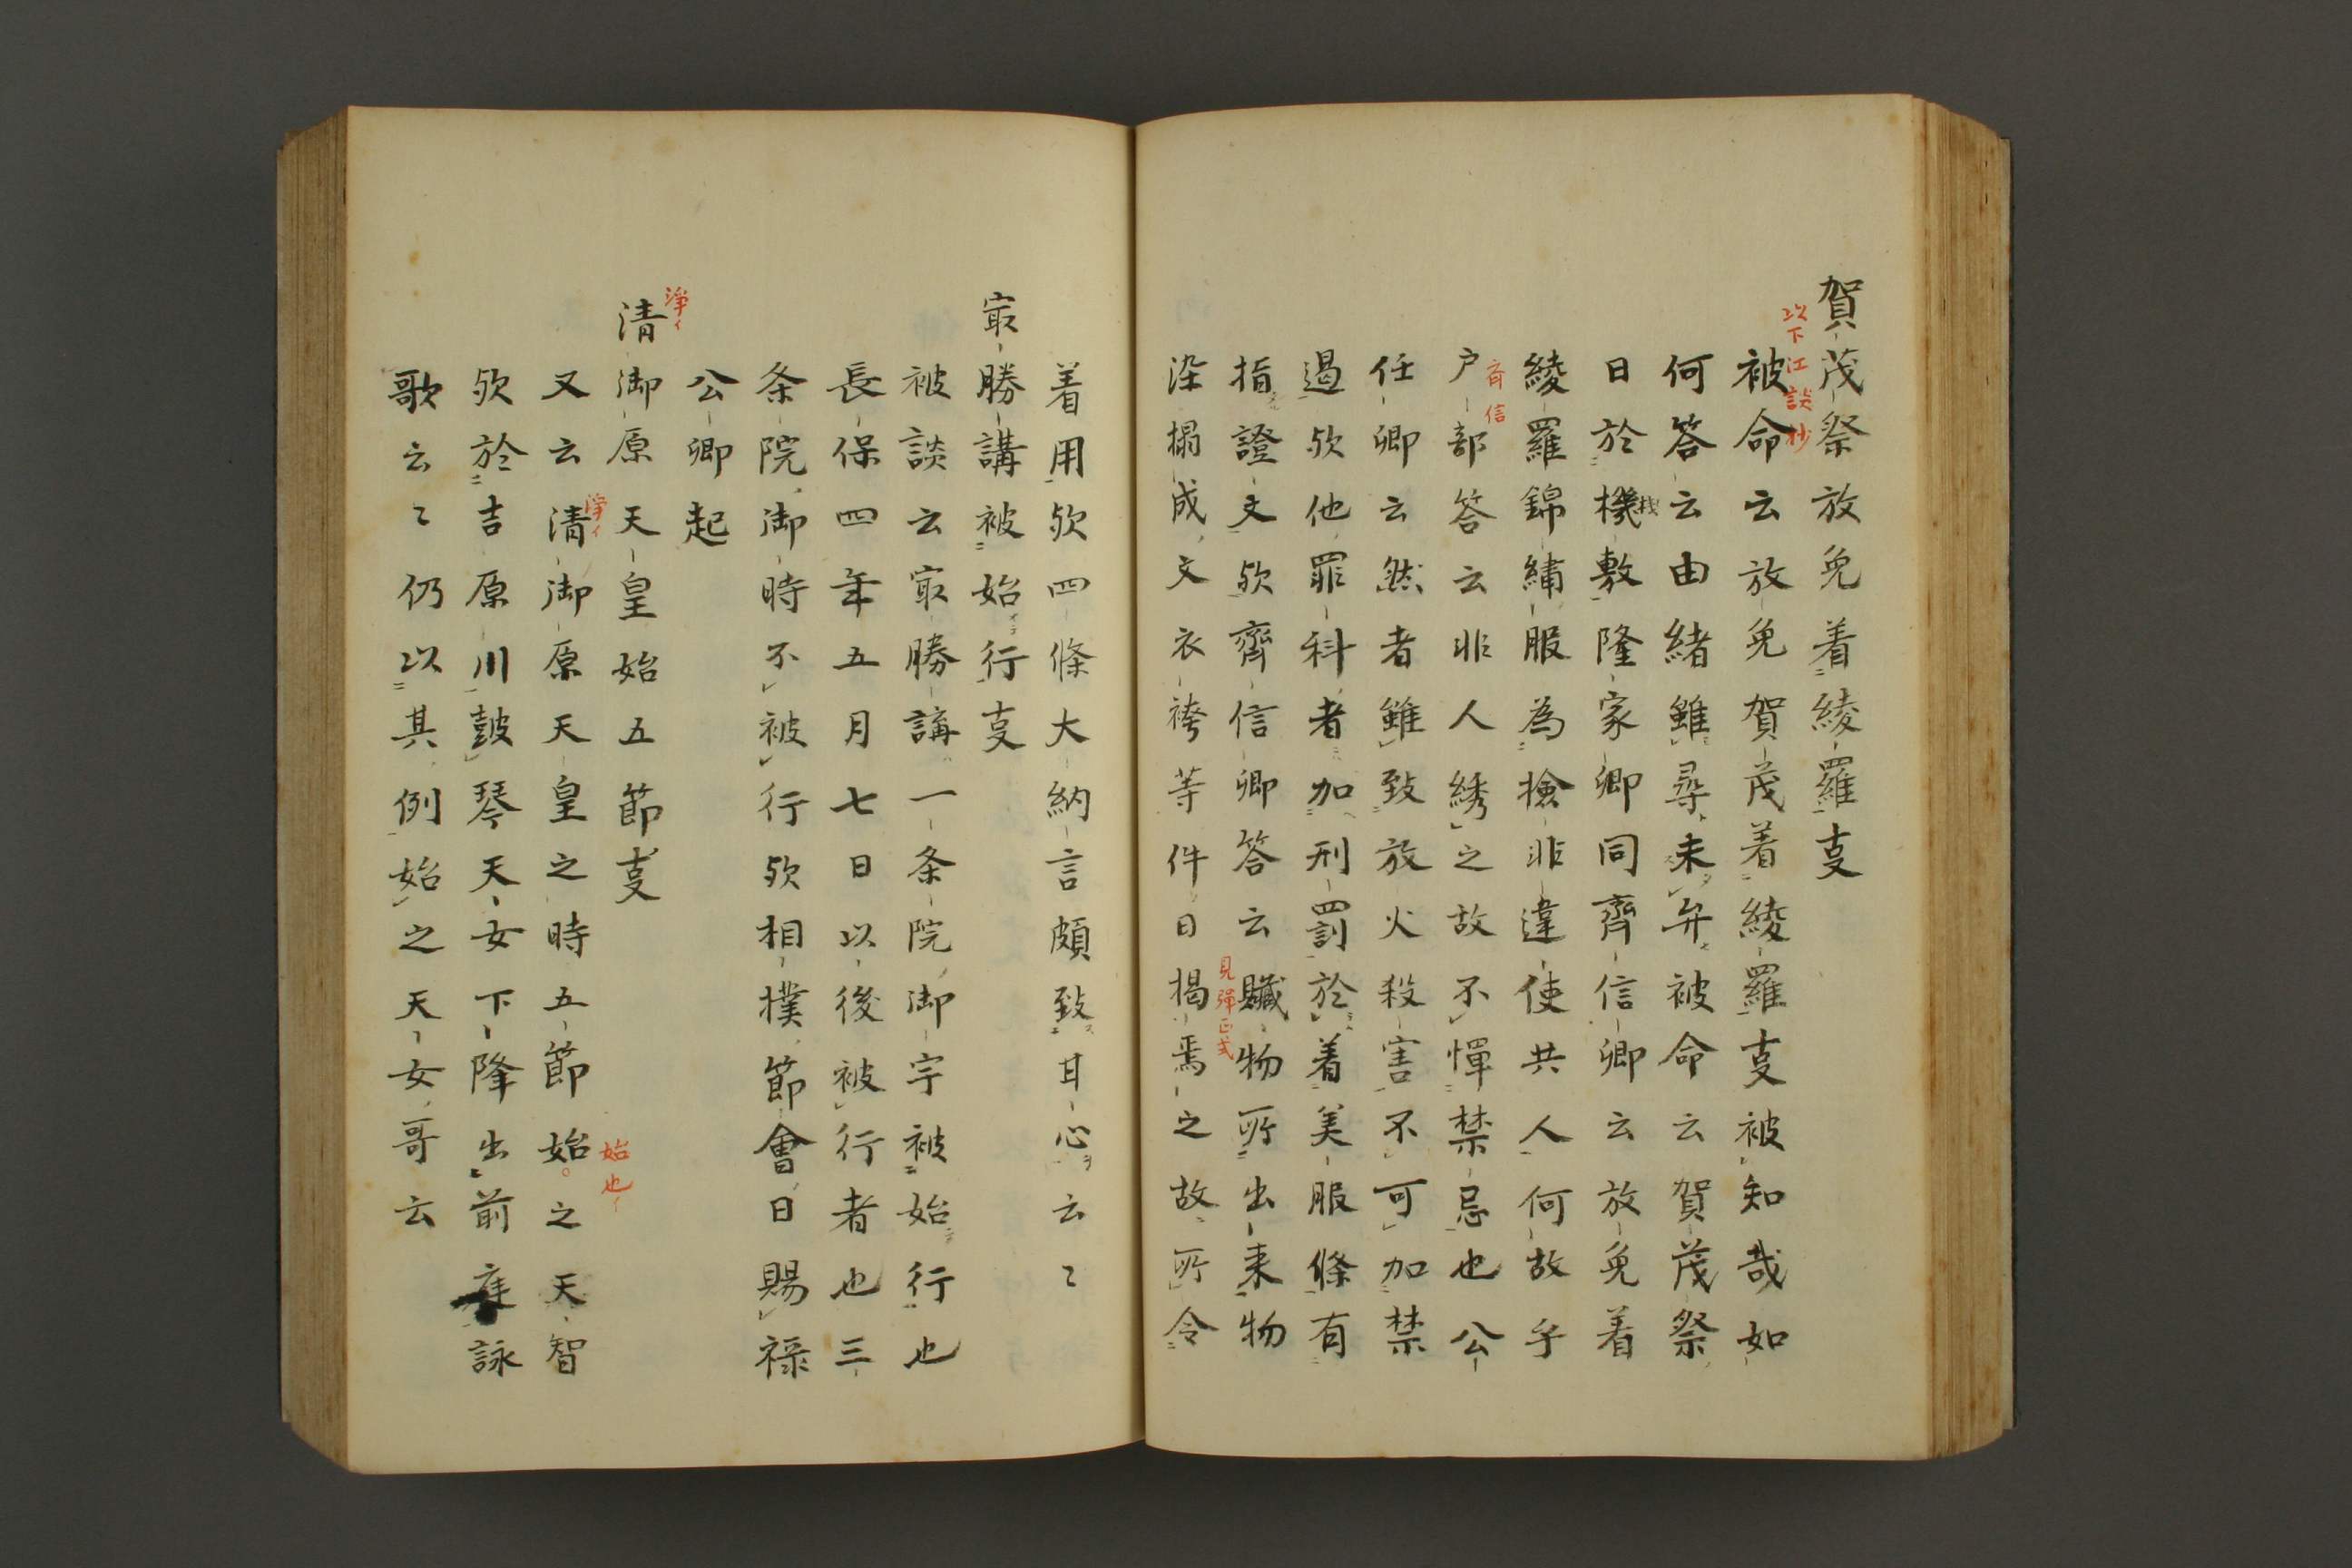 賀茂祭放免着綾羅㕝
以下江談抄
被命云放免賀茂着綾羅㕝被知哉如
何答云由緒雖尋未弁被命云賀茂祭
日於機敷隆家卿同齊信卿云放免着
綾羅錦繡服為撿非違使共人何故乎
斉信
戸部答云非人綉之故不憚禁忌也公
任卿云然者雖致放火殺害不可加禁
遏欤他罪科者加刑罰於着美服條有
指證文欤齊信卿答云贓物所出来物
見弾正式
染摺成文衣袴等件日掲焉之故所令
着用欤四條大納言頗致甘心云〻
㝡勝講被始行㕝
被談云㝡勝講一条院御宇被始行也
長保四年五月七日以後被行者也三
条院御時不被行欤相撲節會日賜禄
公卿起
浄イ
清御原天皇始五節㕝
又云清御原天皇之時五節始之天智
浄イ
始也
欤於吉原川皷琴天女下降出前庭詠
歌云〻仍以其例始之天女哥云